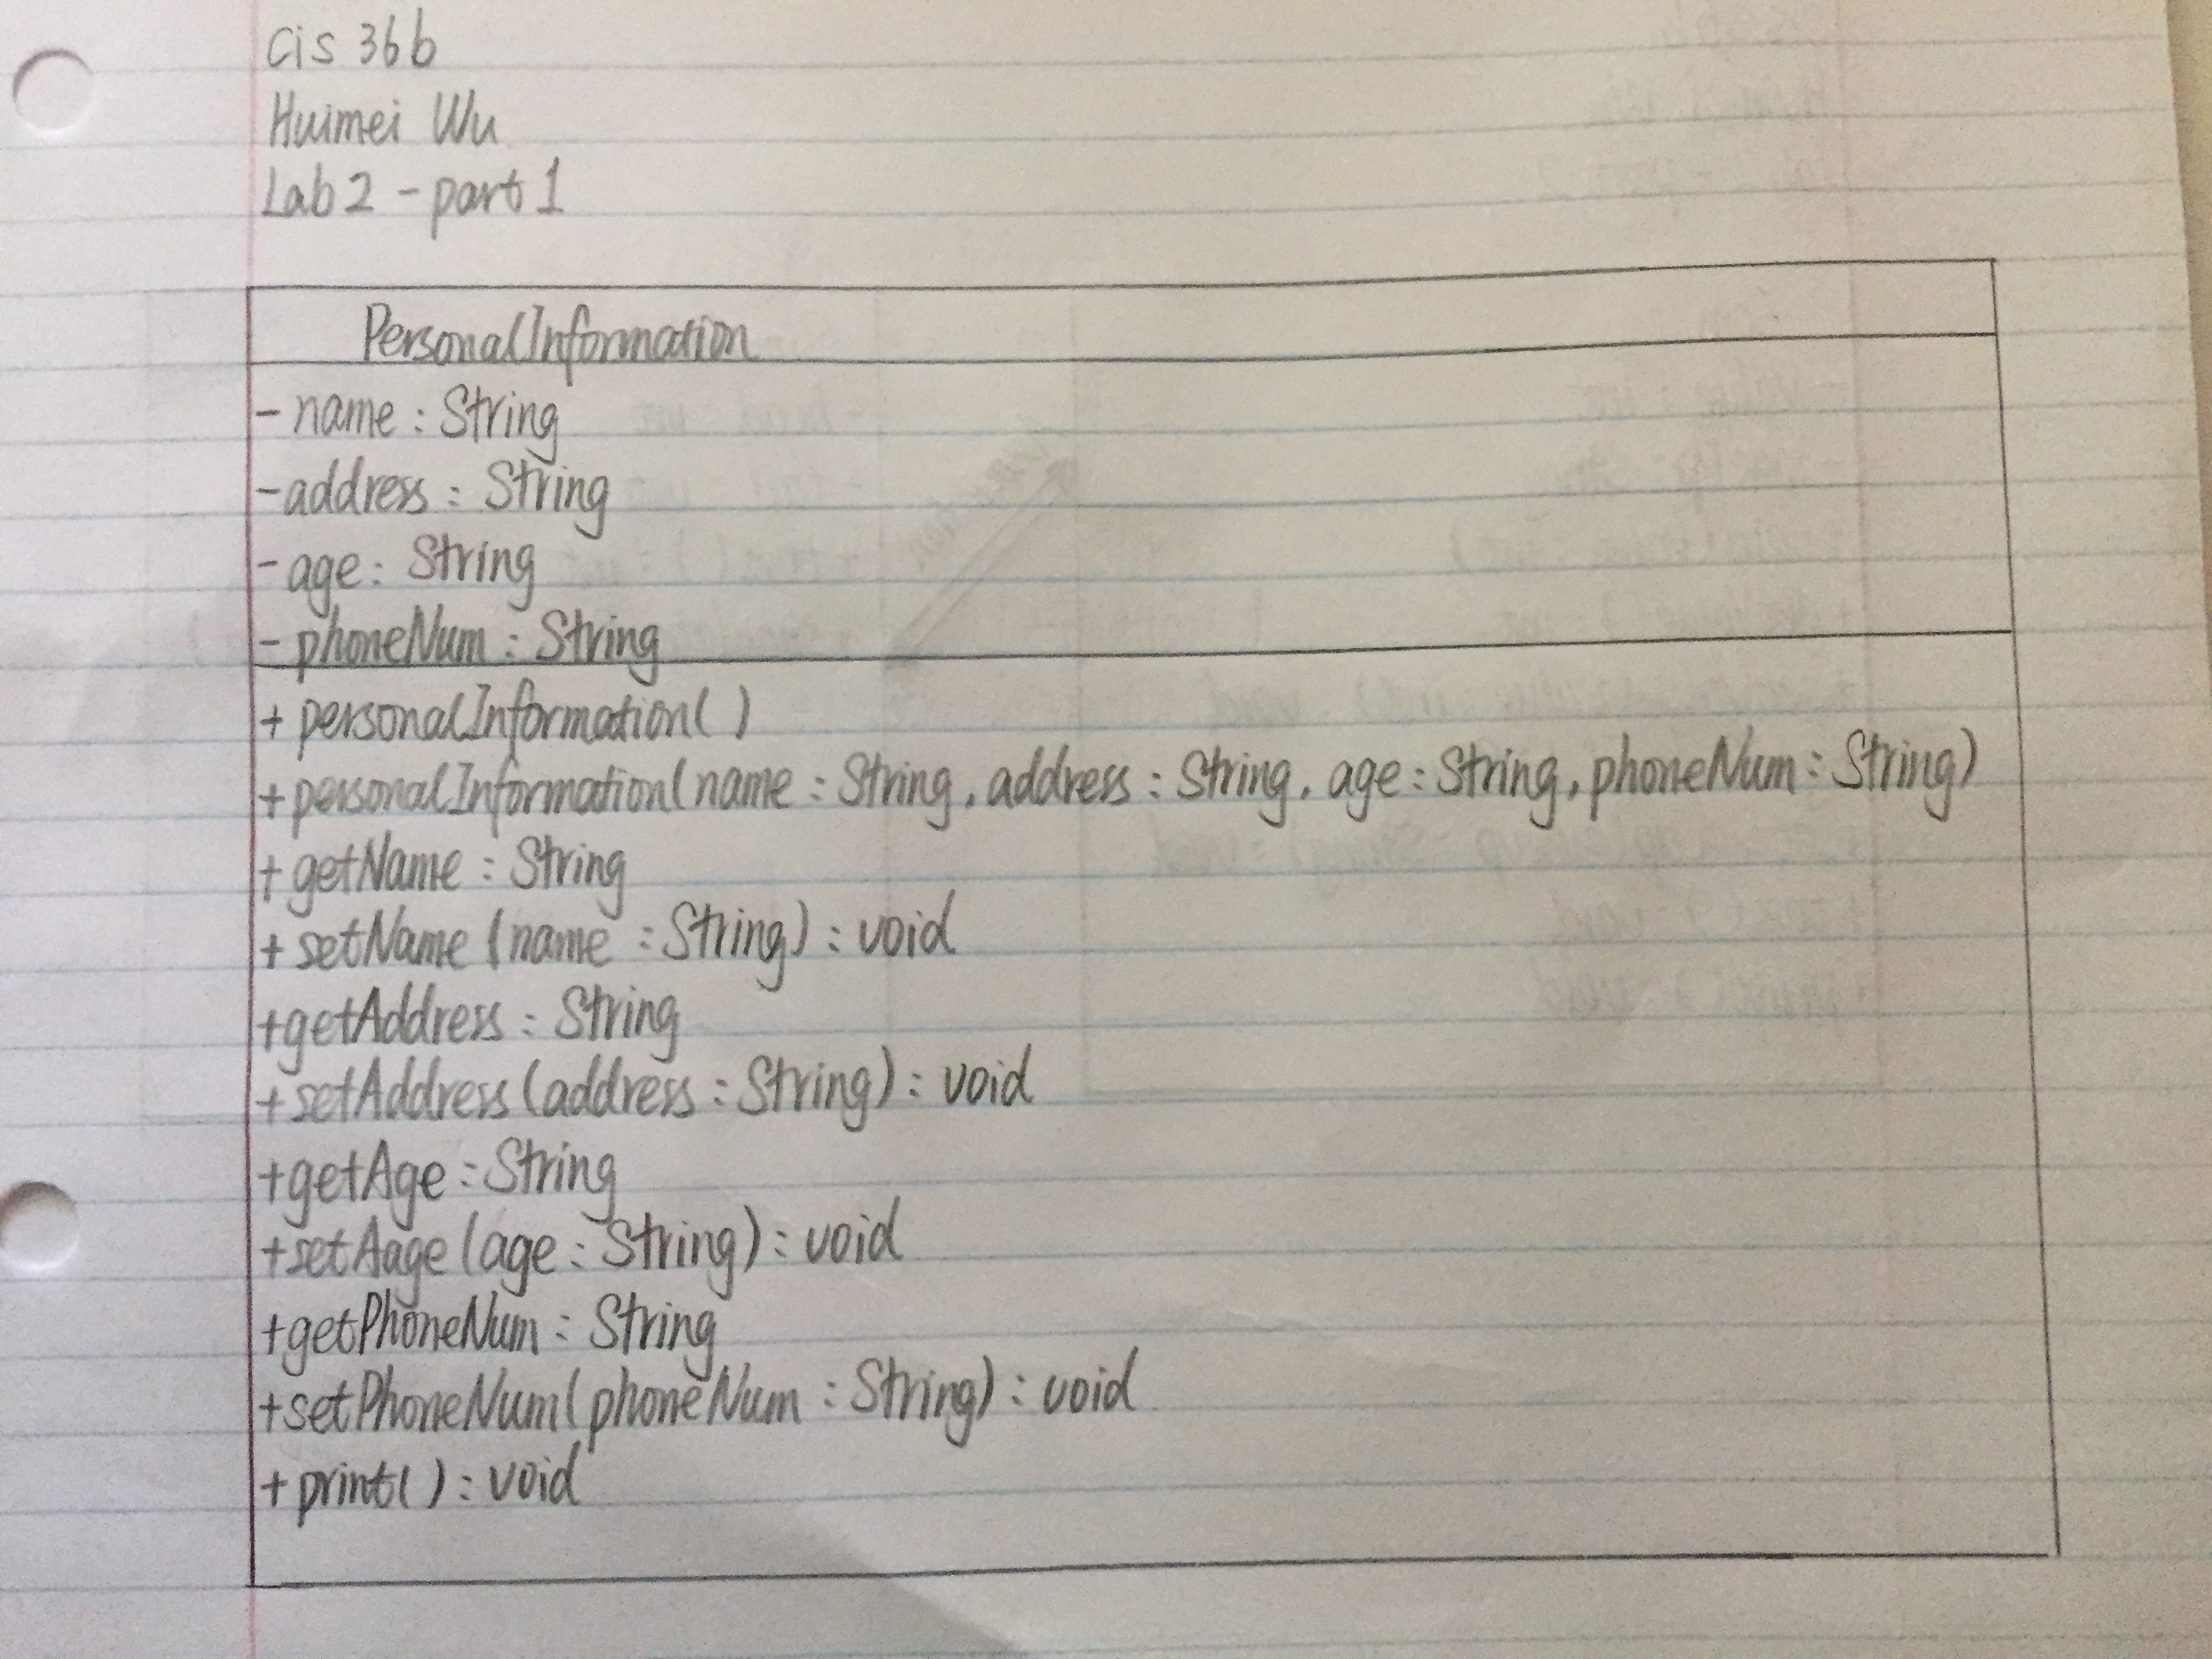 Cis 36b
Huimei Wu
Lab 2 - part 1
PersonalInformation
- name : String
- address : String
- age : String
- phoneNum : String
+ personalInformation( )
+ personalInformation(name : String, address : String, age : String, phoneNum : String)
+ getName : String
+ setName (name : String) : void
+ getAddress : String
+ setAddress (address : String) : void
+ getAge : String
+ setAage (age : String) : void
+ getPhoneNum : String
+ setPhoneNum( phoneNum : String) : void
+ print( ) : void